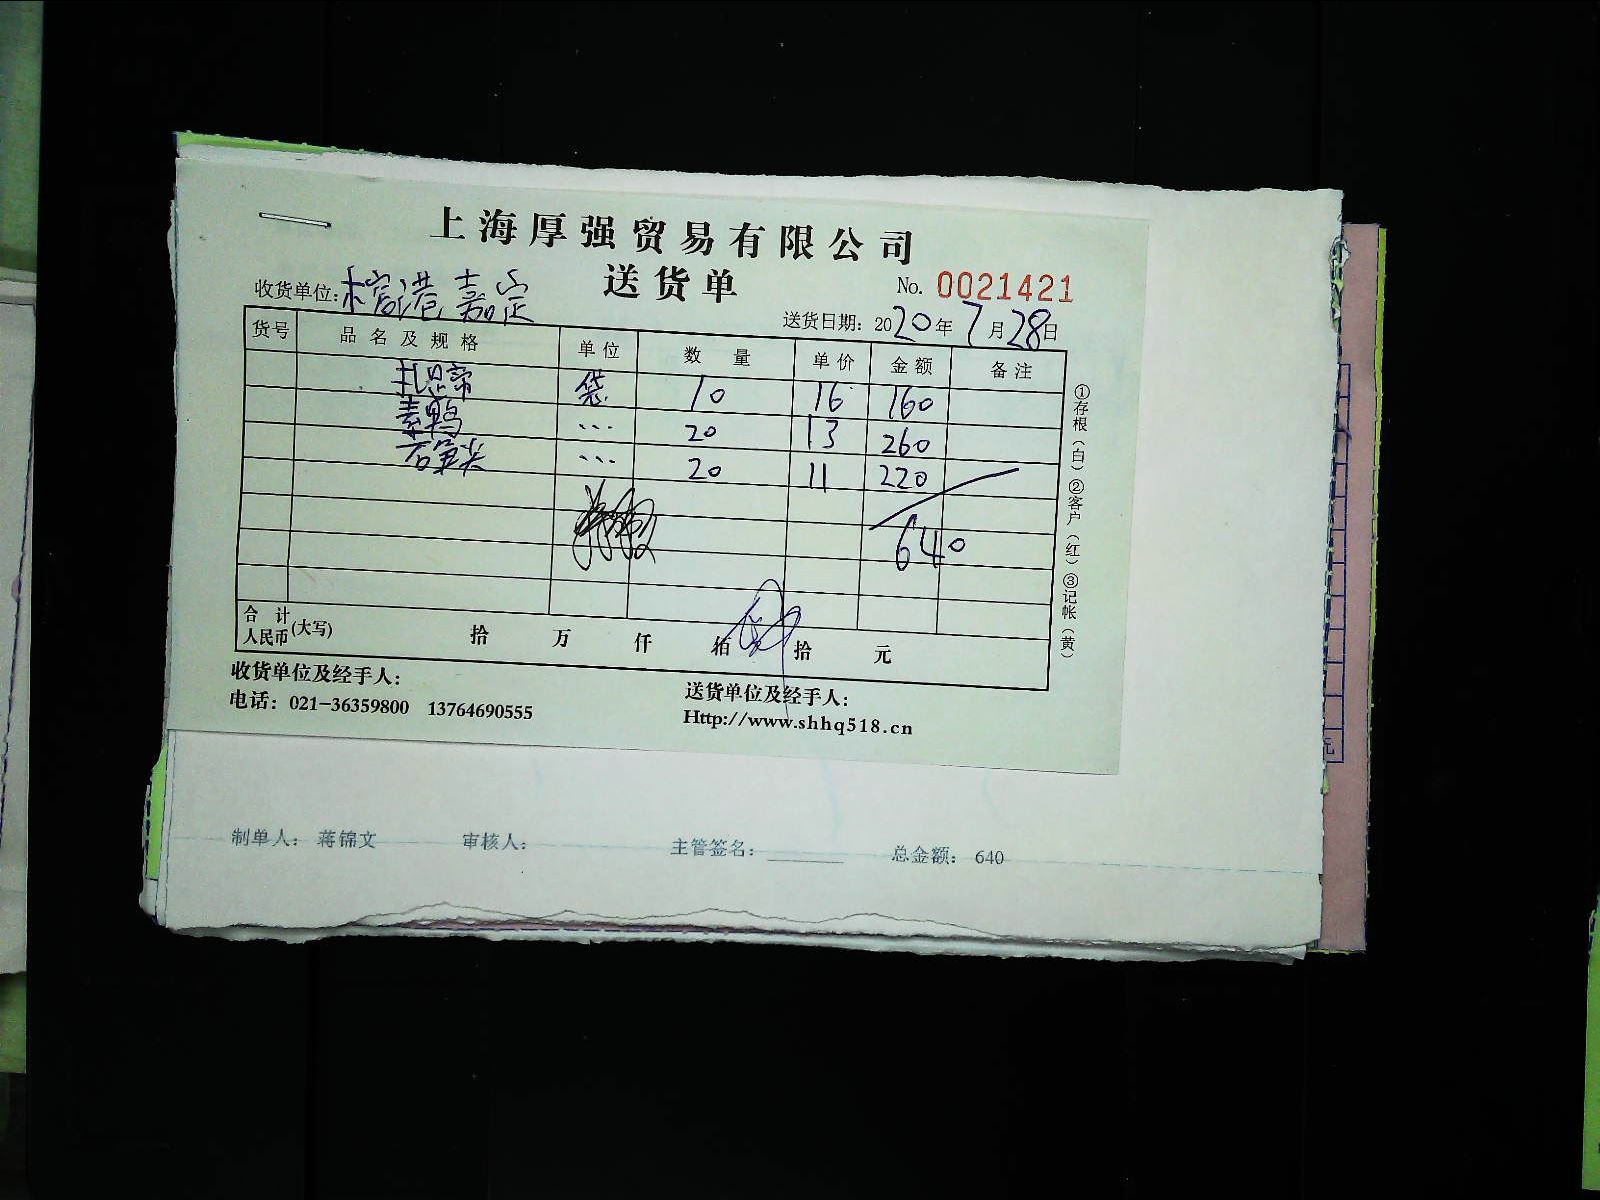 上海厚强贸易有限公司
送货单
No. 0021421
收货单位: 港嘉定
送货日期: 2020年7月28日
货号 品名及规格 单位 数量 单价 金额 备注
袋 10 16 160
素鸭 ... 20 13 260
... 20 11 220
640
合计
人民币 (大写) 拾 万 仟 佰 拾 元
收货单位及经手人:
送货单位及经手人:
电话: 021-36359800 13764690555
Http://www.shhq518.cn
①存根(白)②客户(红)③记帐(黄)
制单人: 蒋锦文 审核人: 主管签名: 总金额: 640
元